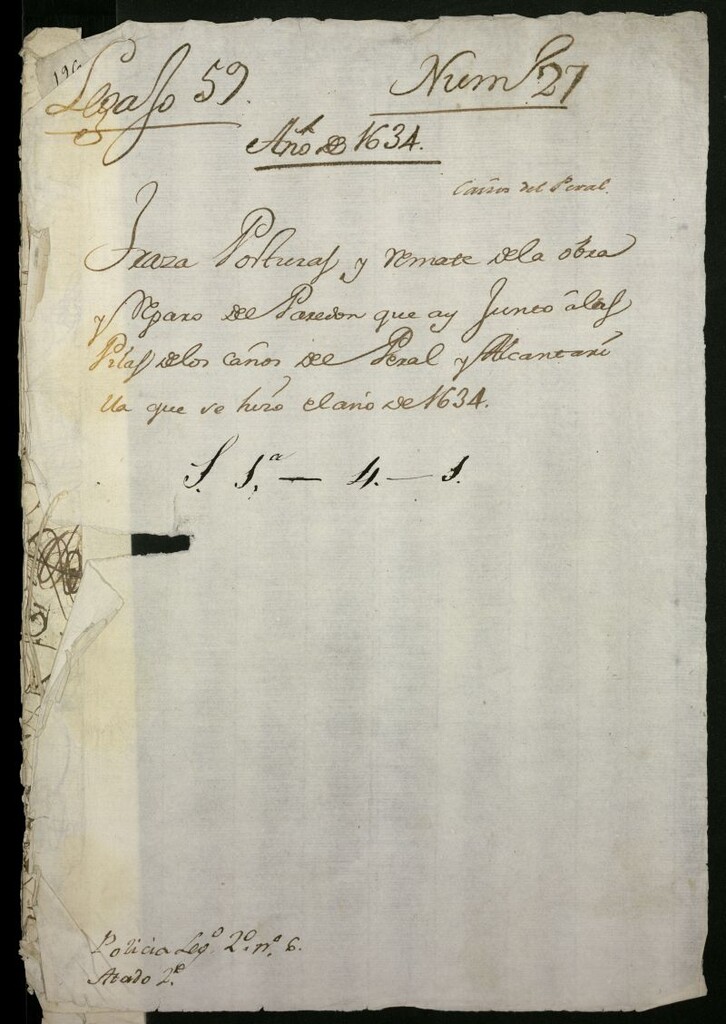 Legajo 59. Num.º 27
Año de 1634.
Caños del Peral.
Traza Posturas y remate de la obra
y Reparo del Paredon que ay Junto â las
Pilas de los caños de el Peral y Alcantari
lla que se hizo el año de 1634.
S. 1.ª — 4. — 1.
Policia Leg.º 2.º n.º 6.
Atado 2.º